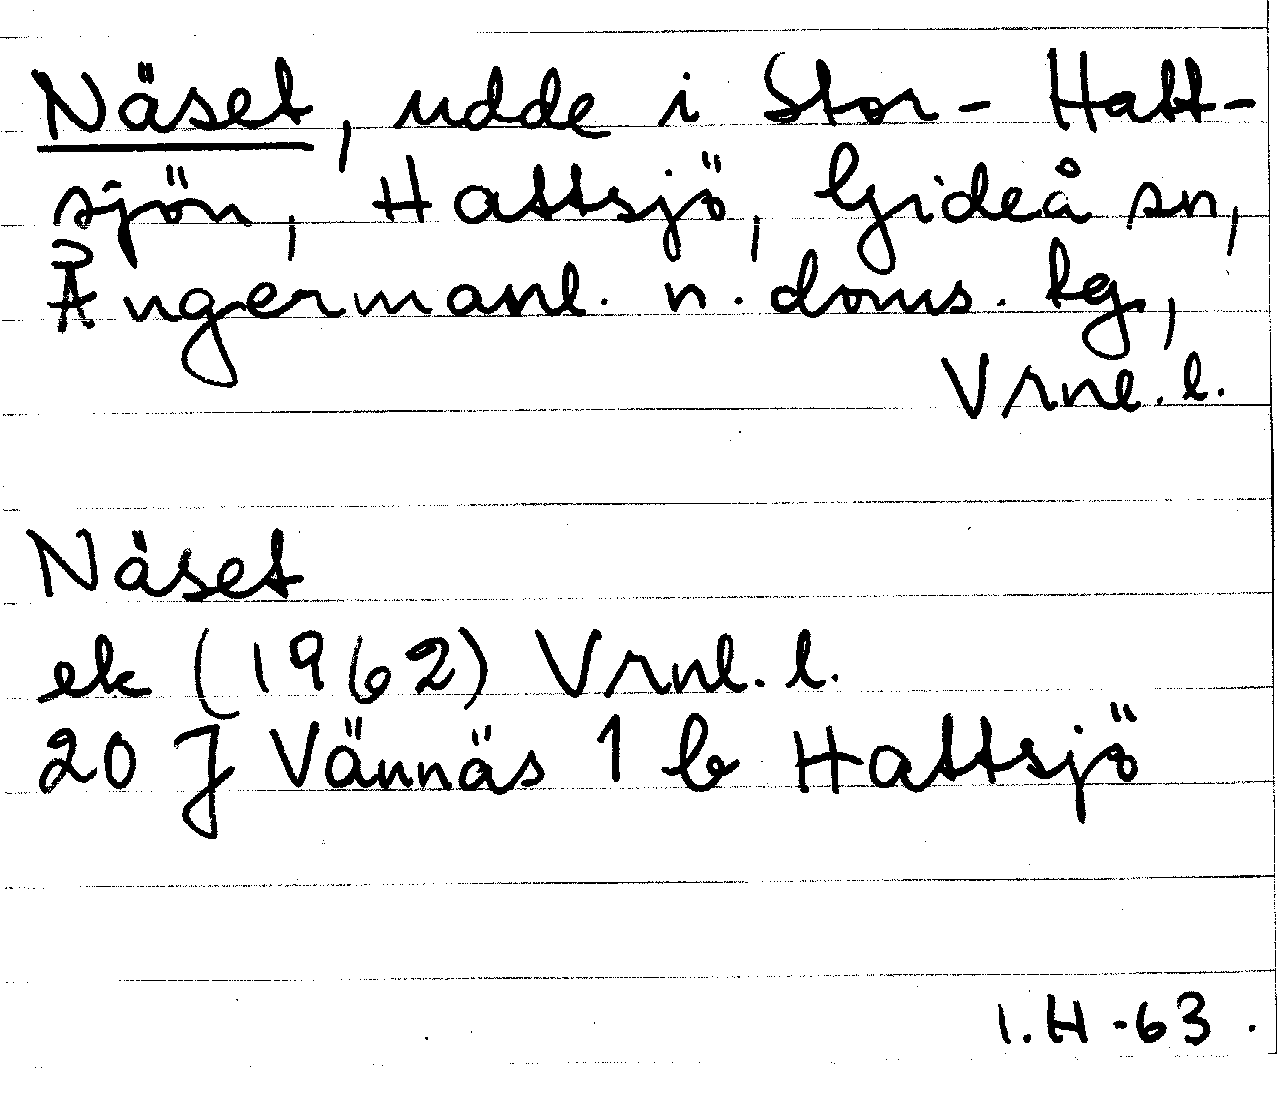 Näset, udde i Stor-Hatt-
sjön, Hattsjö, Gideå sn,
Ångermanl. n. doms. tg,
Vrnl. l.
Näset
ek (1962) Vrnl. l.
20 J Vännäs 1 b Hattsjö
I.H -63.